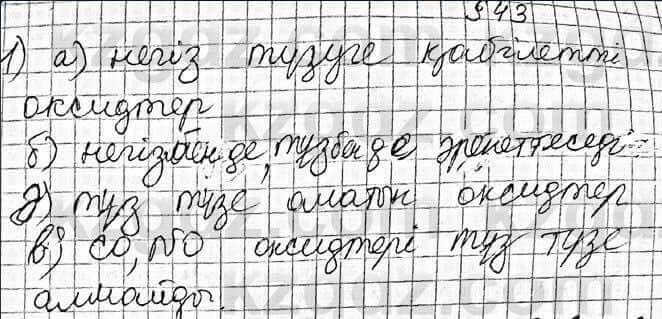 § 43
1) а) негіз түзуге қабілетті
оксидтер
б) негізбен де, тұзба де әрекеттеседі
д) тұз түзе алатын оксидтер
в) CO, NO оксидтері тұз түзе
алмайды.